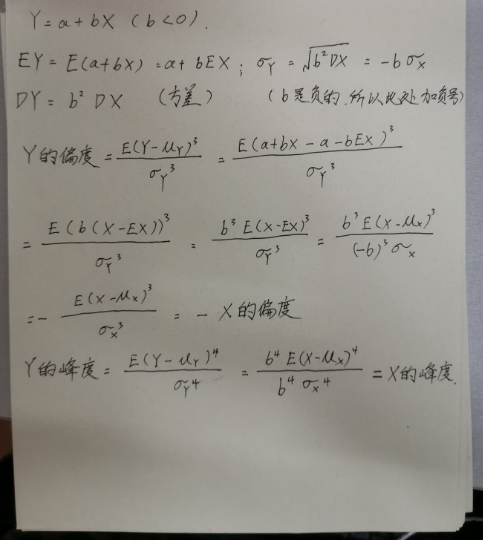 Y = a + bX (b<0).
EY = E(a+bX) = a + bEX ; σ_Y = √(b²DX) = -bσ_X
DY = b² DX (方差) (b是负的,所以此处加负号)
Y的偏度 = E(Y-μ_Y)³ / σ_Y³ = E(a+bX-a-bEX)³ / σ_Y³
= E(b(X-EX))³ / σ_Y³ = b³E(X-EX)³ / σ_Y³ = b³E(X-μ_X)³ / (-b)³σ_X
= - E(X-μ_X)³ / σ_X³ = - X的偏度
Y的峰度 = E(Y-μ_Y)⁴ / σ_Y⁴ = b⁴E(X-μ_X)⁴ / b⁴σ_X⁴ = X的峰度.